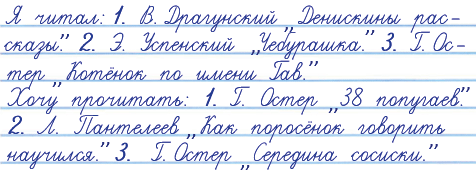 Я читал: 1. В. Драгунский „Денискины рас-
сказы.” 2. Э. Успенский „Чебурашка.” 3. Г. Ос-
тер „Котёнок по имени Гав.”
Хочу прочитать: 1. Г. Остер „38 попугаев.”
2. Л. Пантелеев „Как поросёнок говорить
научился.” 3. Г. Остер „Середина сосиски.”